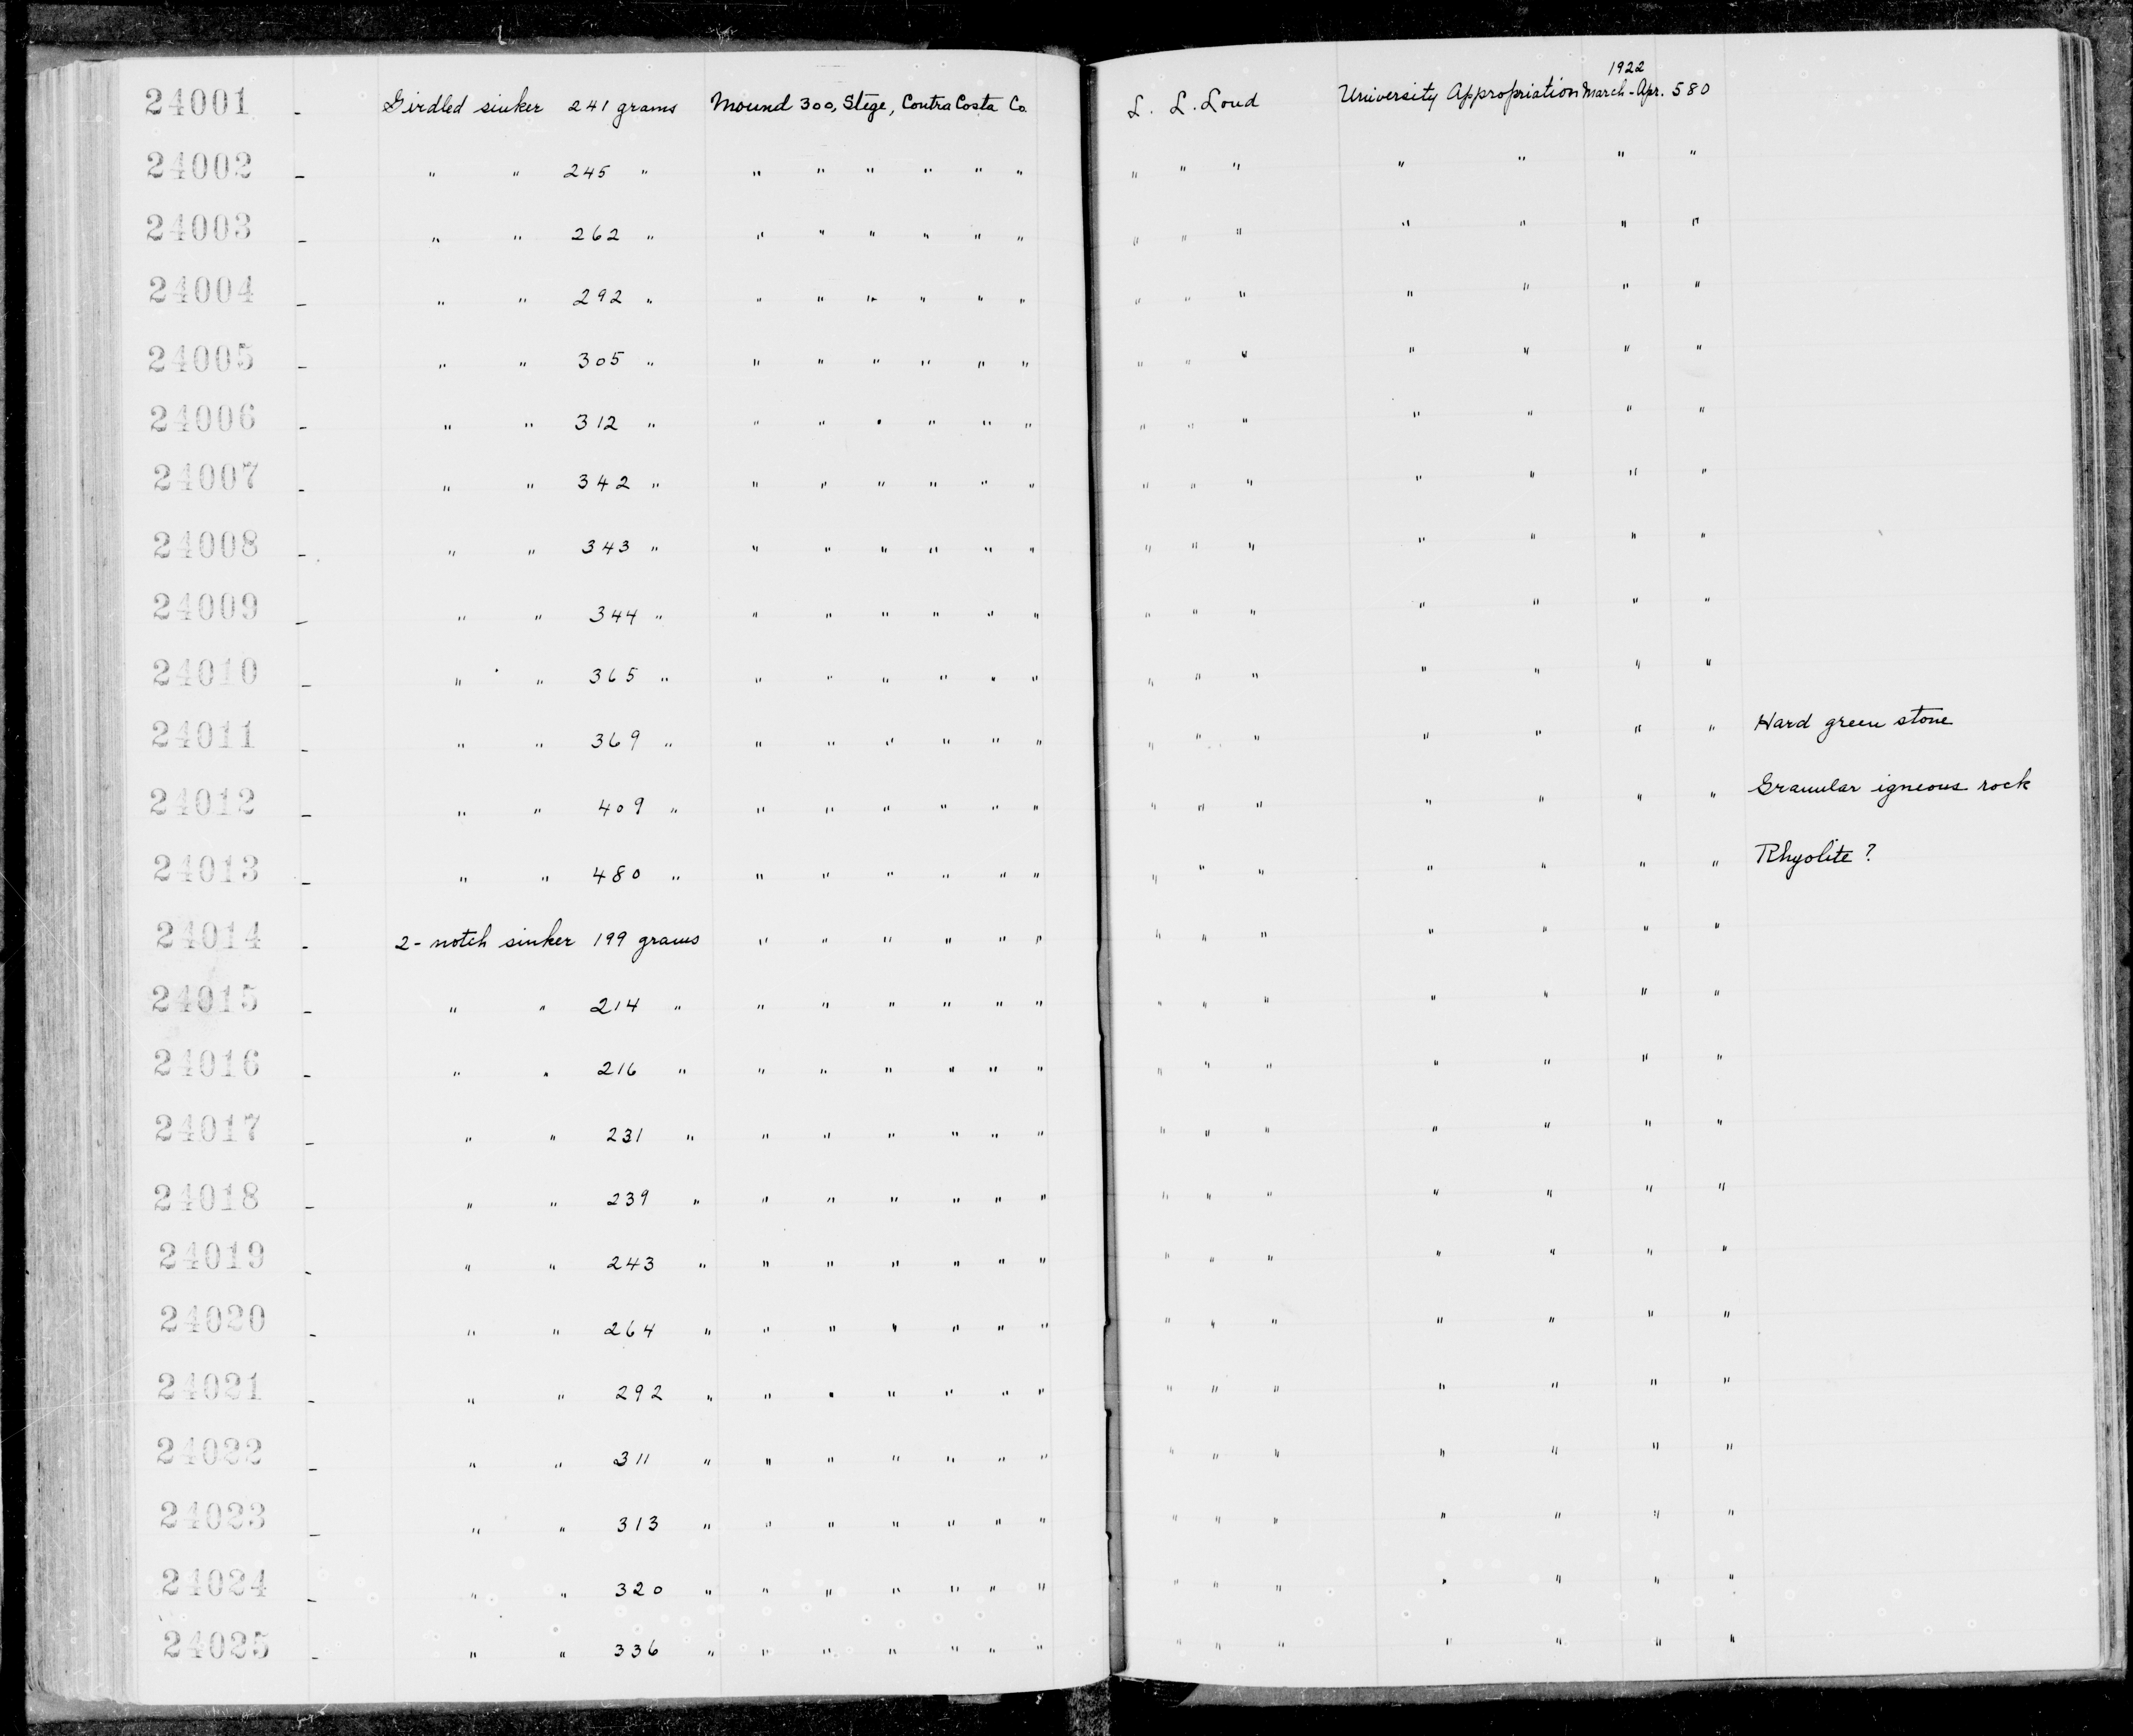 24001 - Girdled sinker 241 grams Mound 300, Stege, Contra Costa Co. L. L. Loud University Appropriation 1922 March-Apr. 580
24002 - " " 245 " " " " " " " " " " " " " "
24003 - " " 262 " " " " " " " " " " " " " "
24004 - " " 292 " " " " " " " " " " " " " "
24005 - " " 305 " " " " " " " " " " " " " "
24006 - " " 312 " " " " " " " " " " " " " "
24007 - " " 342 " " " " " " " " " " " " " "
24008 - " " 343 " " " " " " " " " " " " " "
24009 - " " 344 " " " " " " " " " " " " " "
24010 - " " 365 " " " " " " " " " " " " " "
24011 - " " 369 " " " " " " " " " " " " " " Hard green stone
24012 - " " 409 " " " " " " " " " " " " " " Granular igneous rock
24013 - " " 480 " " " " " " " " " " " " " " Rhyolite ?
24014 - 2-notch sinker 199 grams " " " " " " " " " " " " "
24015 - " " 214 " " " " " " " " " " " " " "
24016 - " " 216 " " " " " " " " " " " " " "
24017 - " " 231 " " " " " " " " " " " " " "
24018 - " " 239 " " " " " " " " " " " " " "
24019 - " " 243 " " " " " " " " " " " " " "
24020 - " " 264 " " " " " " " " " " " " " "
24021 - " " 292 " " " " " " " " " " " " " "
24022 - " " 311 " " " " " " " " " " " " " "
24023 - " " 313 " " " " " " " " " " " " " "
24024 - " " 320 " " " " " " " " " " " " " "
24025 - " " 336 " " " " " " " " " " " " " "